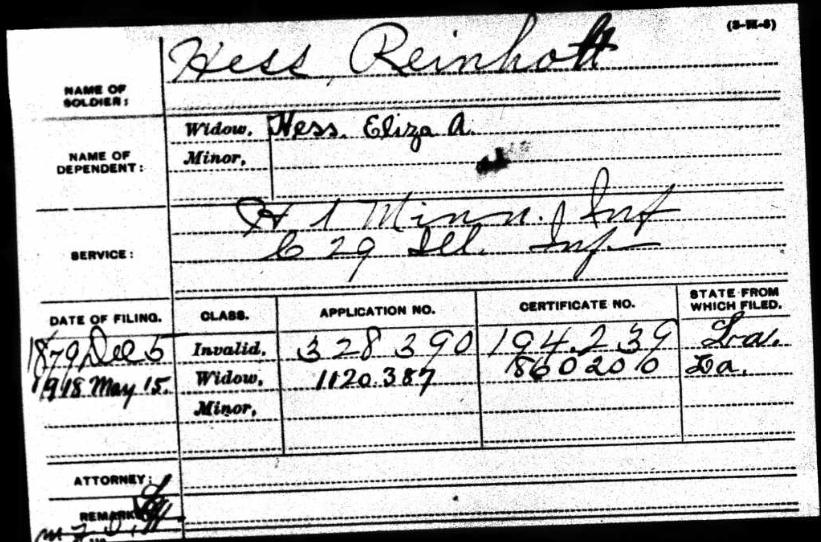 (3-M-6)
NAME OF SOLDIER:
Hess, Reinholt
NAME OF DEPENDENT:
Widow, Hess. Eliza A.
Minor,
SERVICE:
H 1 Minn. Inf
C 29 Ill. Inf.
DATE OF FILING. CLASS. APPLICATION NO. CERTIFICATE NO. STATE FROM WHICH FILED.
1879 Dec 5 Invalid, 328 390 194.239 La.
1918 May 15. Widow, 1120.387 860200 La.
Minor,
ATTORNEY:
REMARKS: